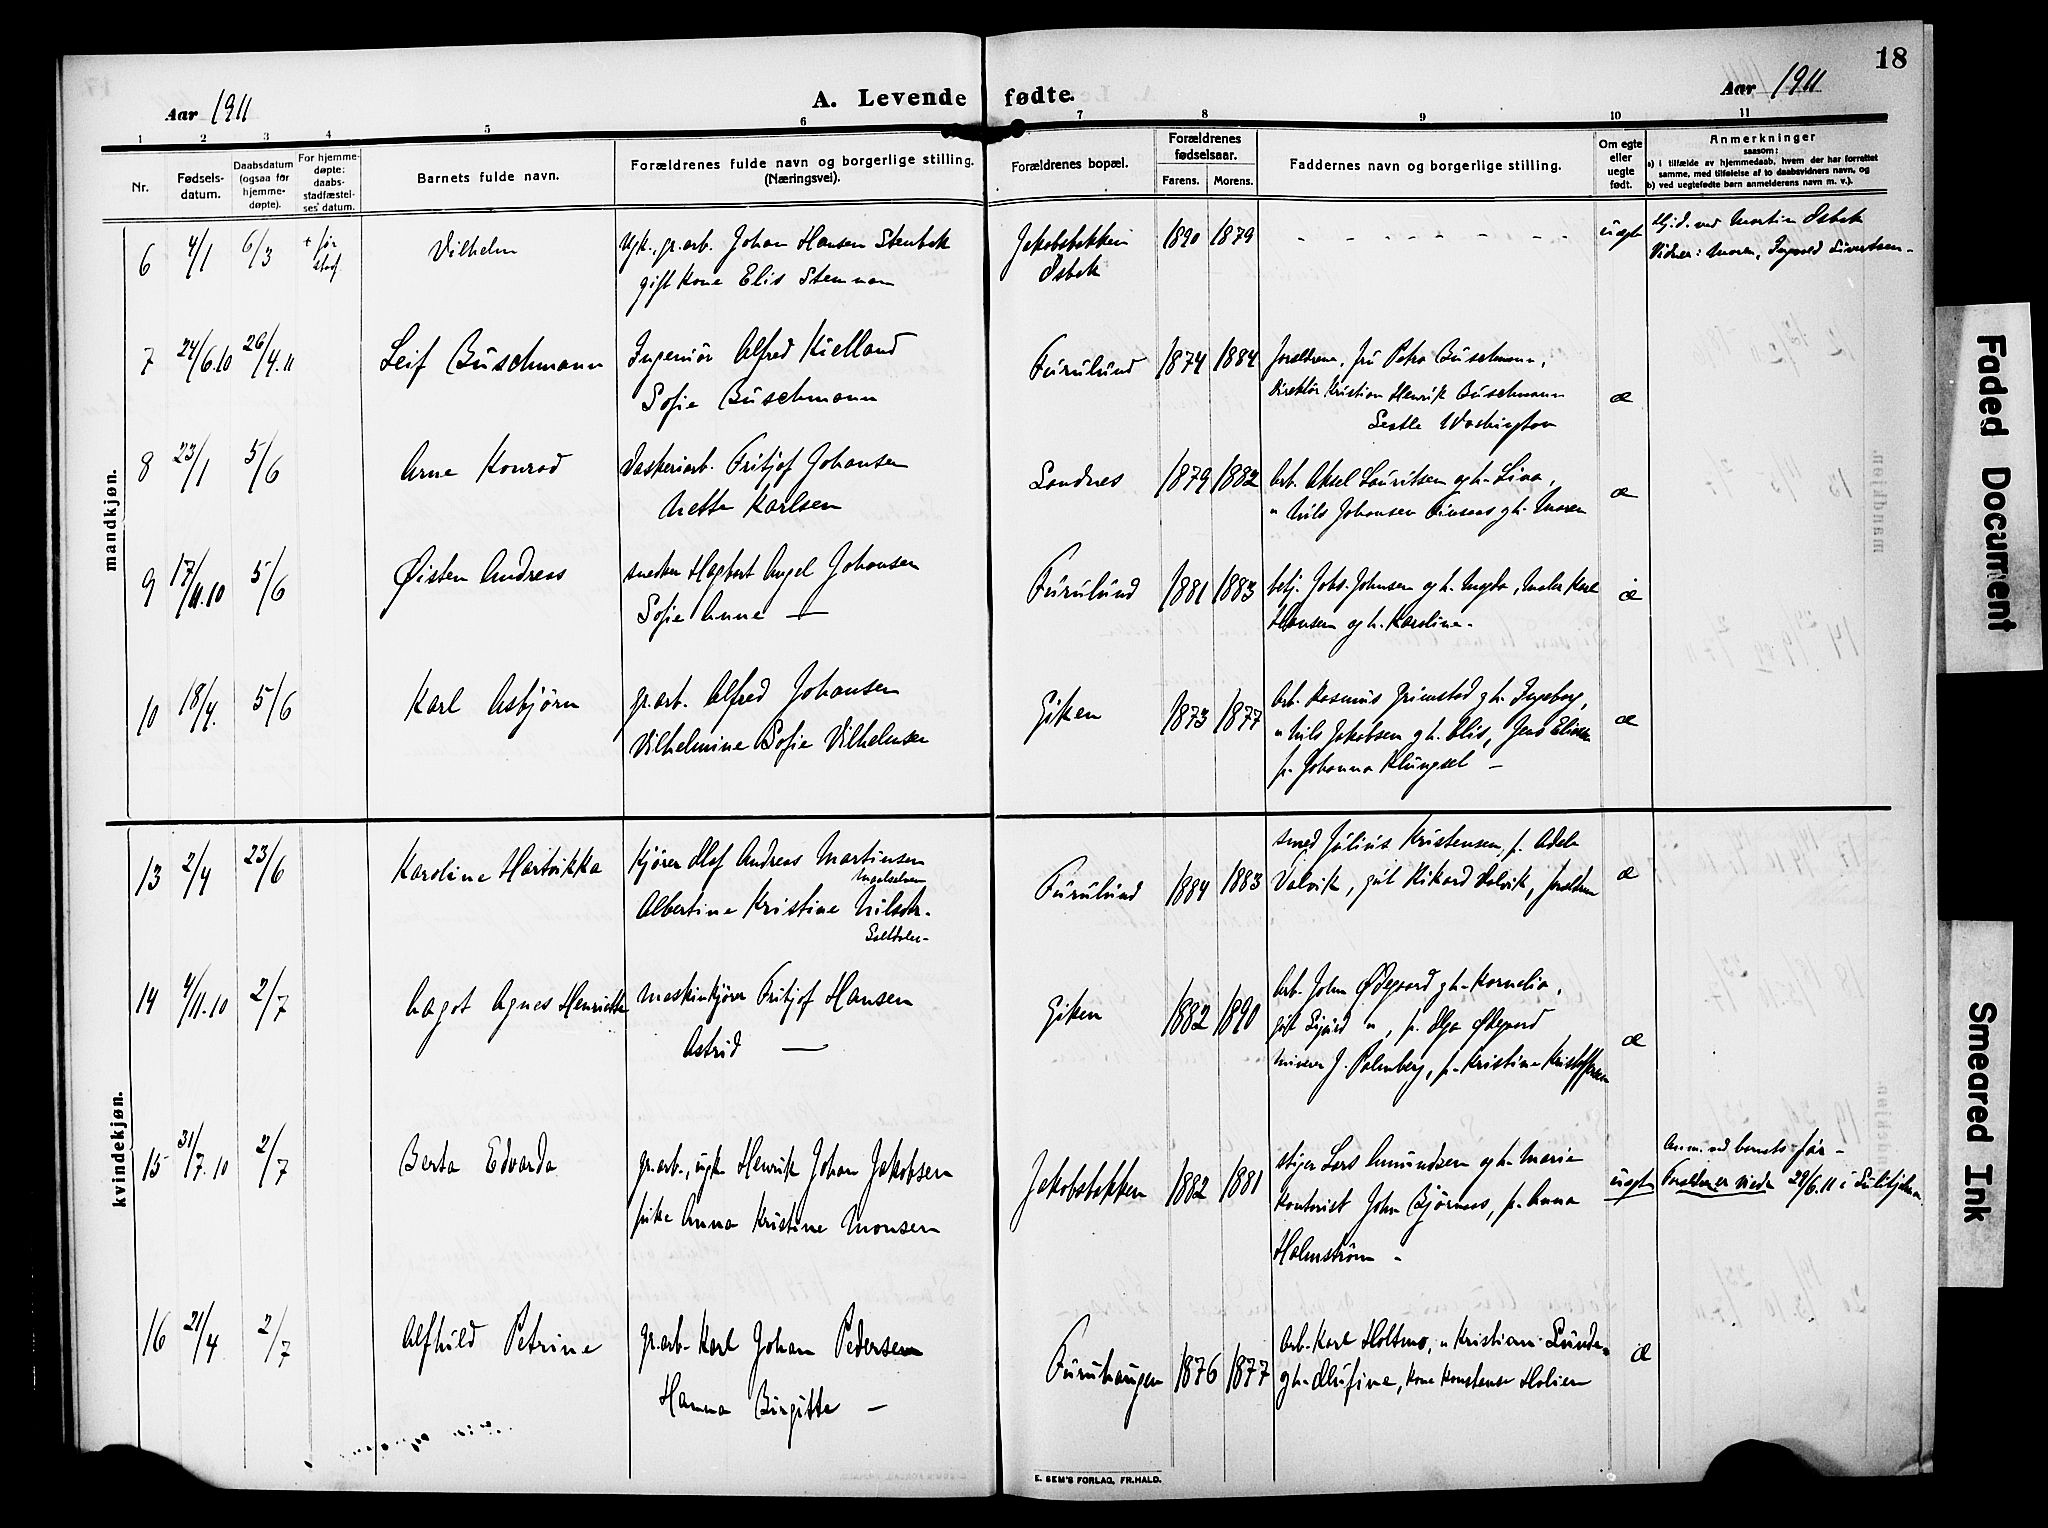 18
Aar 1911
A. Levende fødte.
Aar 1911
1 2 3 4 5 6 7 8 9 10 11
Nr.
Fødsels-
datum.
Daabsdatum
(ogsaa før
hjemme-
døpte).
For hjemme-
døpte:
daabs-
stadfæstel-
ses datum.
Barnets fulde navn.
Forældrenes fulde navn og borgerlige stilling.
(Næringsvei).
Forældrenes bopæl.
Forældrenes
fødselsaar.
Farens. Morens.
Faddernes navn og borgerlige stilling.
Om egte
eller
uegte
født.
Anmerkninger
saasom:
a) i tilfælde av hjemmedaab, hvem der har forrettet
samme, med tilføielse af to daabsvidners navn, og
b) ved uegtefødte børn anmelderens navn m. v.).
mandkjøn.
6 4/1 6/3 + før
stadf
Vilhelm
Ugk. gr.arb. Johan Hansen Stenbek
gift kone Elis Stenman
Jakobsbakken
Øsbek
1890 1879
uegte
Hj.d. ved Martin Øsbek
Vidner: Moren, Ingvald Sivertsen
7 24/6.10 26/4.11
Leif Buschmann
Ingeniør Alfred Kielland
Sofie Buschmann
Furulund
1874 1884
forældrene, fru Petra Buschmann,
Direktør Kristian Henrik Buschmann
Leslie Washington
æ
8 23/1 5/6
Arne Konrad
Vaskeriarb. Fritjof Johansen
Nette Karlsen
Sandnes
1879 1882
Arb. Aksel Lauritsen og h. Lina,
" Nils Johansen Finsaas og h. Maren
æ
9 17/11.10 5/6
Øisten Andreas
snedker Hagbart Angel Johansen
Sofie Anne —
Furulund
1881 1883
betj. Johs. Johnsen og h. Magda, Maler Karl
Hansen og h. Karoline.
æ
10 18/4. 5/6
Karl Asbjørn
gr.arb. Alfred Johansen
Vilhelmine Sofie Vilhelmsen
Giken
1873 1877
Arb. Rasmus Grimstad og h. Ingeborg,
" Nils Jakobsen og h. Elis, Jens Eliasen
p. Johanna Klungsel —
æ
kvindekjøn.
13 2/4 23/6
Karoline Hartvikka
Kjører Olaf Andreas Martinsen
Albertine Kristine Nilsdtr.
Saltdalen
Furulund
1884 1883
smed Julius Kristensen, p. Adele
Valvik, gut Rikard Valvik, forældrene
æ
14 4/11.10 2/7
Aagot Agnes Henriette
Maskinkjører Fritjof Hansen
Astrid —
Giken
1882 1890
Arb. John Ødegaard og h. Kornelia,
gut Sigurd ", p. Olga Ødegaard
Minerer J. Palmberg, p. Kristine Kristoffersen
æ
15 31/7.10 2/7
Berta Edvarda
gr.arb., ugk. Henrik Johan Jakobsen
pike Anna Kristine Monsen
Jakobsbakken
1882 1881
stiger Lars Amundsen og h. Marie
Kontorist John Bjørnes, p. Anna
Halmstrøm -
uegte
Anm. ved barnets far -
Forældrene viede 29/6.11 i Sulitjelma
16 21/4 2/7
Alfhild Petrine
gr.arb. Karl Johan Pedersen
Hanna Birgitte —
Furuhaugen
1876 1877
Arb. Karl Holtmo, " Kristian Lunde
og h. Olufine, Kone Konstanse Holien
æ
E. SEM'S FORLAG, FR.HALD.
Faded Document
Smeared Ink